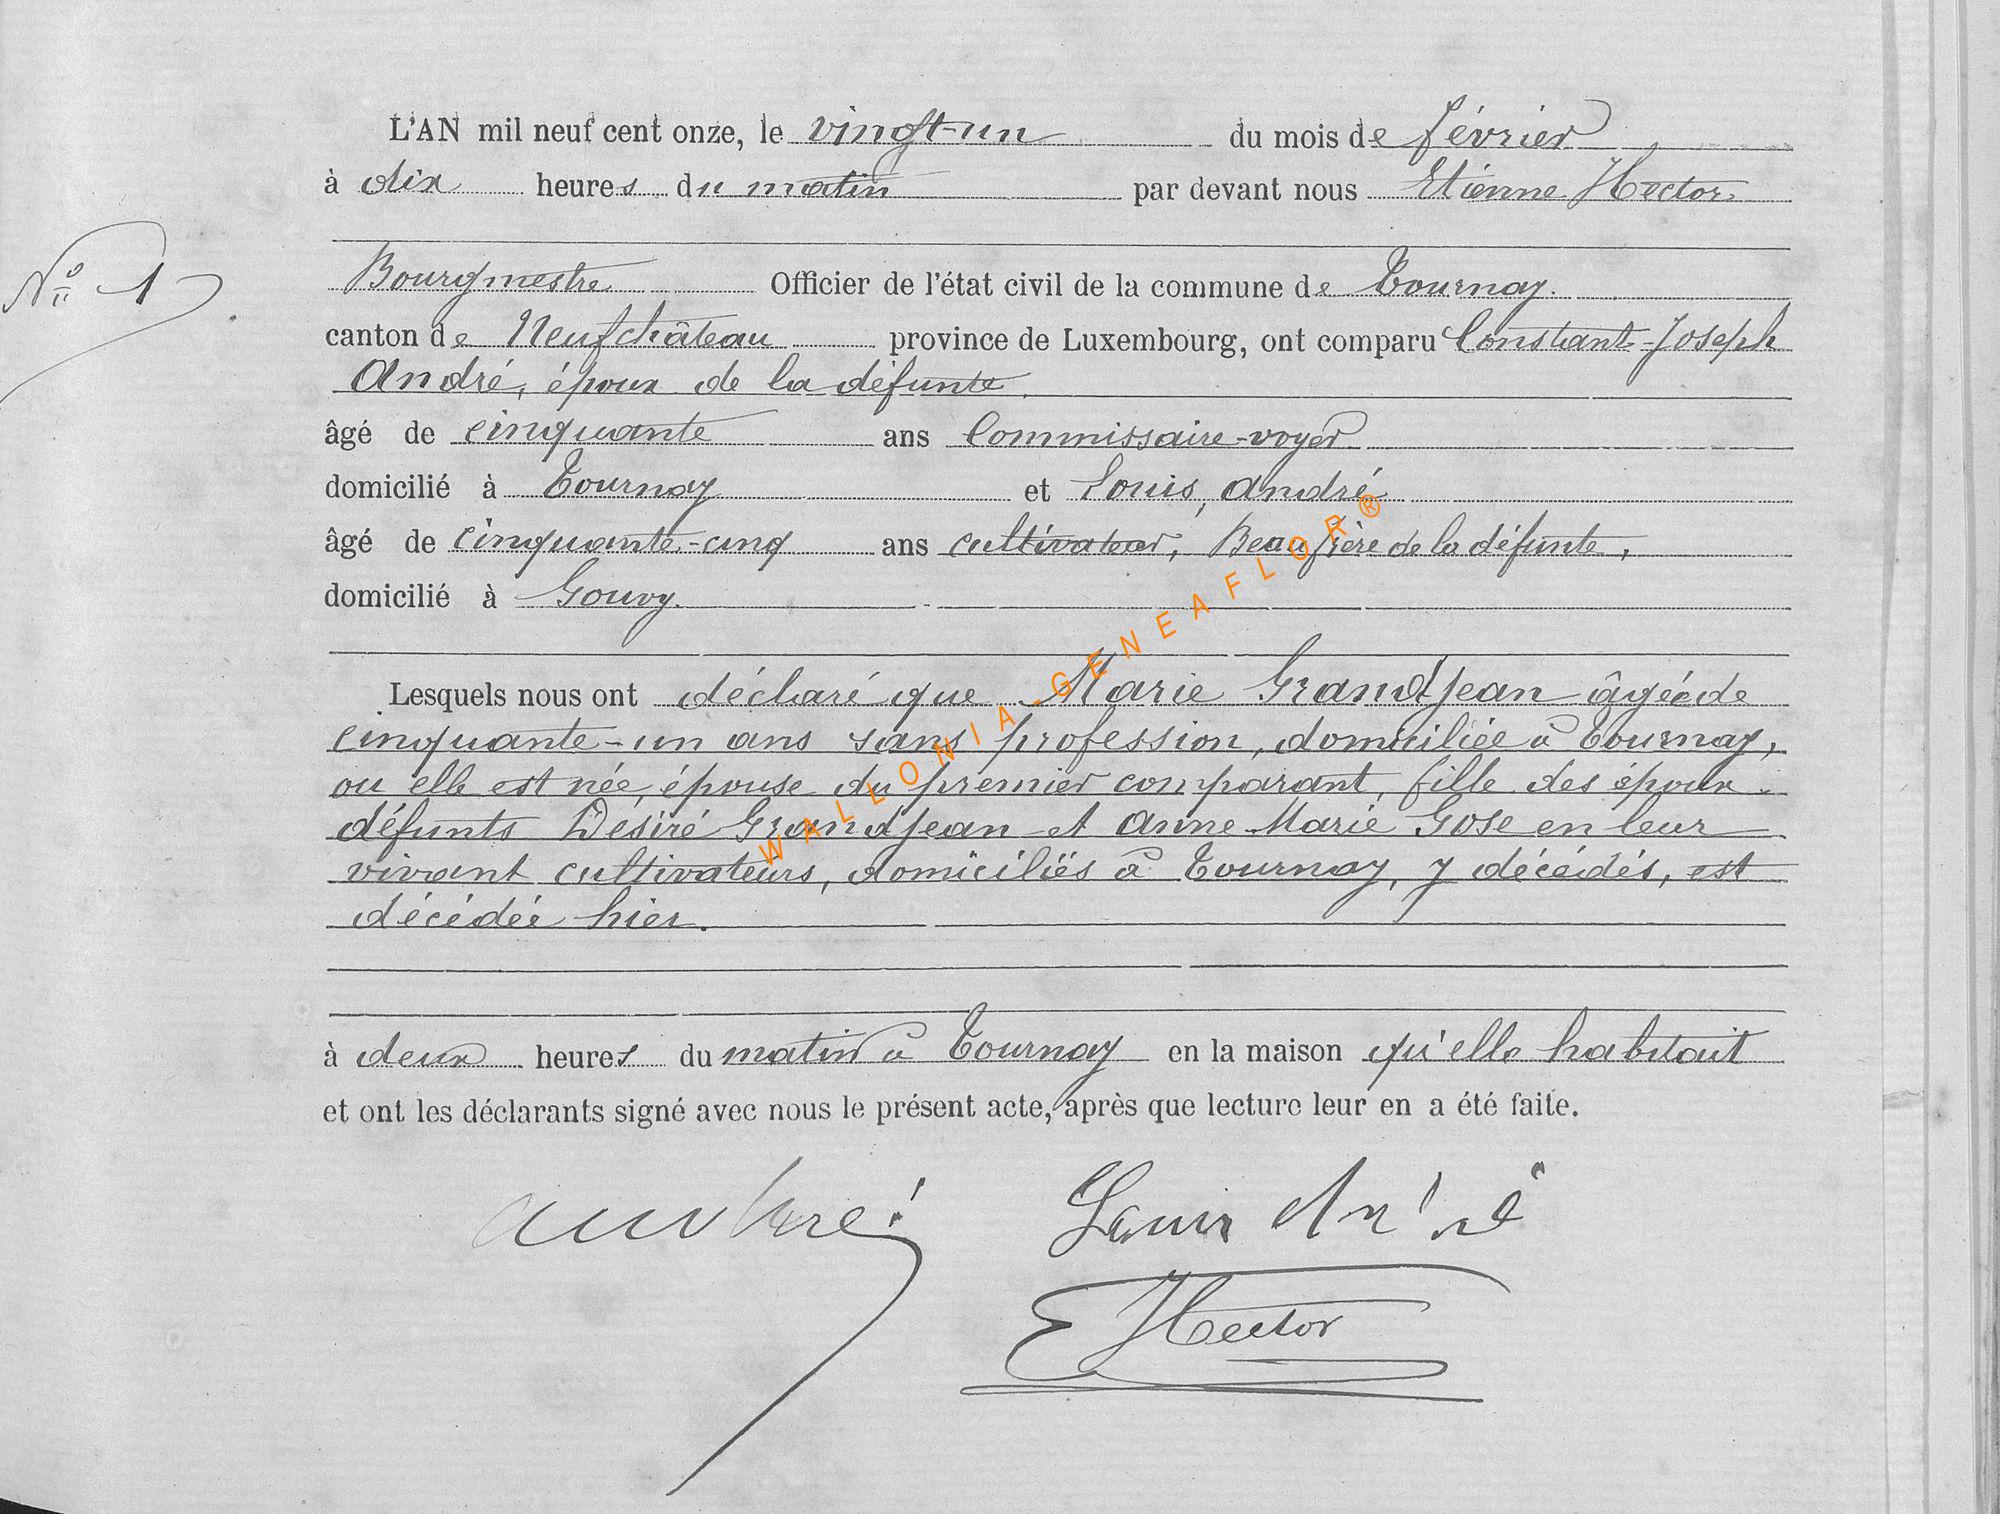 L'AN mil neuf cent onze, le vingt-un du mois de février
à dix heures du matin par devant nous Etienne Hector
Nº 1
Bourgmestre Officier de l'état civil de la commune de Tournay.
canton de Neufchâteau province de Luxembourg, ont comparu Constant-Joseph
André, époux de la défunte
âgé de cinquante ans Commissaire-voyer
domicilié à Tournay et Louis, André
âgé de cinquante-cinq ans cultivateur, Beau frère de la défunte,
domicilié à Gouvy.
Lesquels nous ont déclaré que Marie Grandjean âgée de
cinquante-un ans sans profession, domiciliée à Tournay,
ou elle est née, épouse du premier comparant, fille des époux
défunts Desiré Grandjean et Anne-Marie Gose en leur
vivant cultivateurs, domiciliés à Tournay, y décédés, est
décédée hier.
à deux heures du matin à Tournay en la maison qu'elle habitait
et ont les déclarants signé avec nous le présent acte, après que lecture leur en a été faite.
André Louis André
E Hector
WALLONIA-GENEAFLOR®